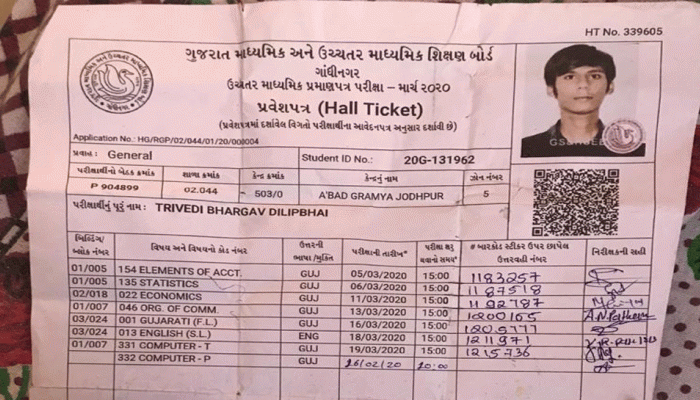 HT No. 339605
ગુજરાત માધ્યમિક અને ઉચ્ચતર માધ્યમિક શિક્ષણ બોર્ડ
ગાંધીનગર
ઉચ્ચતર માધ્યમિક પ્રમાણપત્ર પરીક્ષા - માર્ચ ૨૦૨૦
પ્રવેશપત્ર (Hall Ticket)
(પ્રવેશપત્રમાં દર્શાવેલ વિગતો પરીક્ષાર્થીના આવેદનપત્ર અનુસાર દર્શાવી છે)
Application No.: HG/RGP/02/044/01/20/000004
પ્રવાહ : General Student ID No.: 20G-131962
પરીક્ષાર્થીનો બેઠક ક્રમાંક શાળા ક્રમાંક કેન્દ્ર ક્રમાંક કેન્દ્રનું નામ ઝોન નંબર
P 904899 02.044 503/0 A'BAD GRAMYA JODHPUR 5
પરીક્ષાર્થીનું પૂરું નામ: TRIVEDI BHARGAV DILIPBHAI
બિલ્ડિંગ/ બ્લોક નંબર વિષય અને વિષયનો કોડ નંબર ઉત્તરની ભાષા/મુક્તિ પરીક્ષાની તારીખ* પરીક્ષા શરૂ થવાનો સમય* # બારકોડ સ્ટીકર ઉપર છાપેલ ઉત્તરવહી નંબર નિરીક્ષકની સહી
01/005 154 ELEMENTS OF ACCT. GUJ 05/03/2020 15:00 1183257
01/005 135 STATISTICS GUJ 06/03/2020 15:00 1187518
02/018 022 ECONOMICS GUJ 11/03/2020 15:00 1122787
01/007 046 ORG. OF COMM. GUJ 13/03/2020 15:00 1200165
03/024 001 GUJARATI (F.L.) GUJ 16/03/2020 15:00
03/024 013 ENGLISH (S.L.) ENG 18/03/2020 15:00 1211971
01/007 331 COMPUTER - T GUJ 19/03/2020 15:00 1215736
332 COMPUTER - P GUJ 26/02/20 10:00